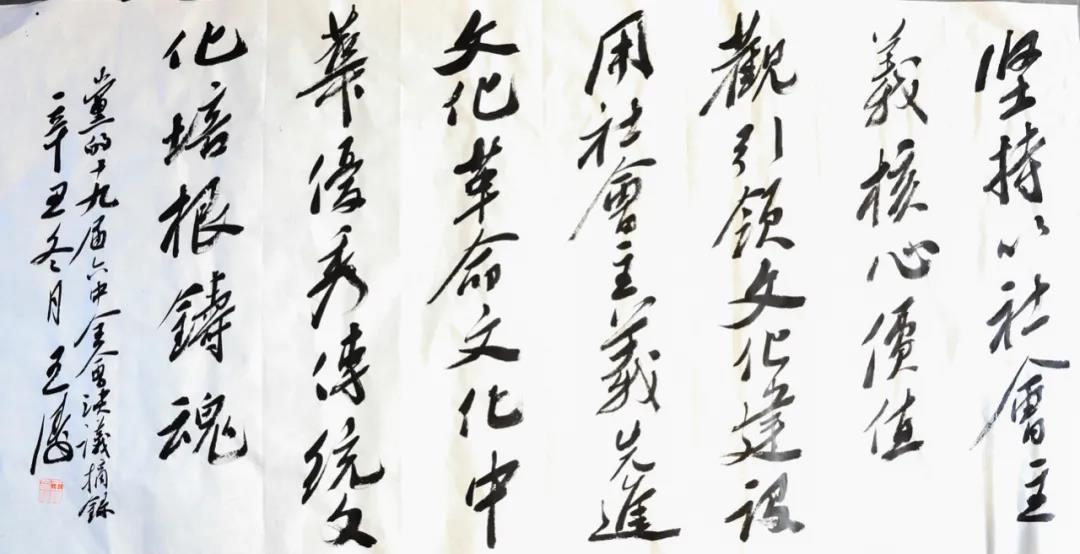 坚持以社會主
義核心價值
觀引領文化建設
用社會主義先進
文化革命文化中
華優秀傳統文
化培根鑄魂
党的十九届六中全會決議摘錄
辛丑冬月 王濤